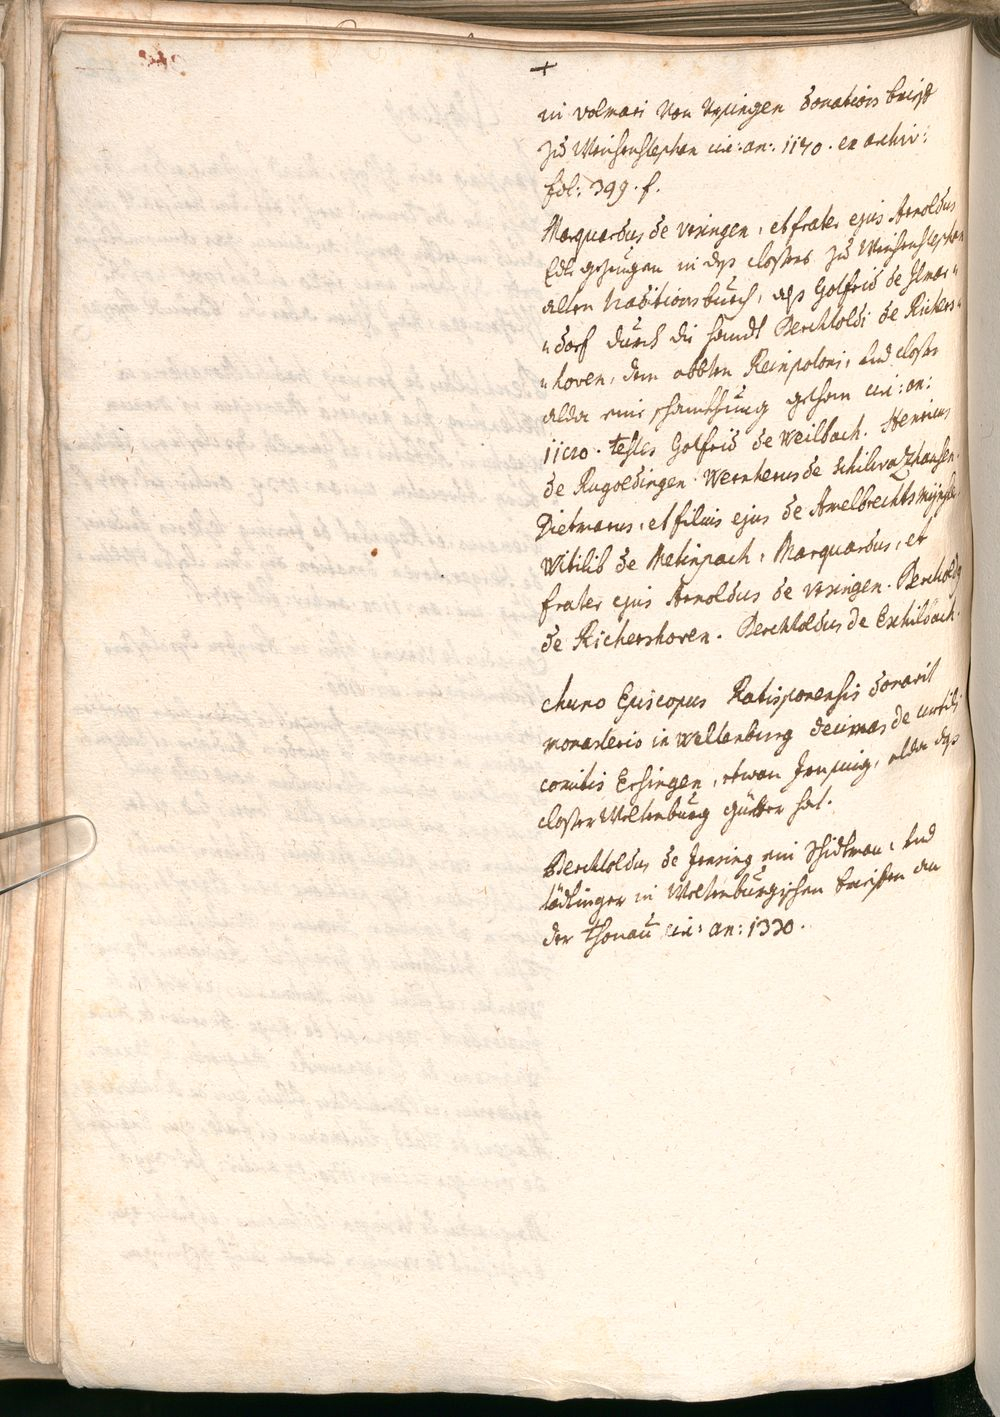 +
in volmari von Vrsingen donations brieff
zu Weichenstephan cir: an: 1170. ex archiv:
fol: 399. f.
Marquardus de vrsingen, et frater ejus Arnoldus
Edl gezeugen in deß closters zu Weichenstephan
alten traditionsbuech, alß Golfrid de Ilmen"
"dorf durch die handt Berchtoldi de Rickers"
"hoven, dem abbten Reinpoloni, und closter
alda eine schankhung gethan cir: an:
11c20. testes Golfrid de Weilbach. Henricus
de Rugoldingen. Wernherus de Schilwazhausen.
Dietmarus, et filius ejus de Amelbrechtsmünster.
Witilib de Metinpach, Marquardus, et
frater ejus Arnoldus de vrsingen. Berchtold9
de Richershoven. Berchtoldus de Exhilbach.
chuno Episcopus Ratisponensis donavit
monasterio in Weltenburg decimas de curtili
comitis Ersingen, etwan Irnsing, alda deß
closter Weltenburg gütter hat.
Berchtoldus de Irnsing ein Schidman, und
tädtinger in Weltenburgischen brieffen an
der thonau cir: an: 1330.